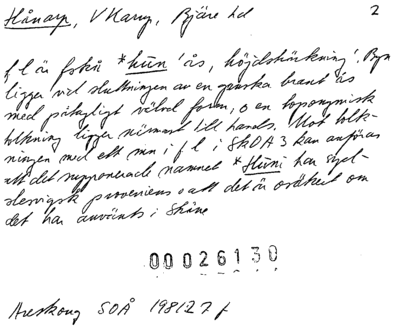 Hånarp, V Karup, Bjäre hd 2
f l är fskå *hūn 'ås, höjdsträckning'. Byn
ligger vid sluttningen av en ganska brant ås
med påtagligt välvd form, o en toponymisk
tolkning ligger närmast till hands. Mot tolk-
ningen med ett mn i f l i SkOA 3 kan anföras
att det supponerade namnet *Hūni har syd-
slesvigsk proveniens o att det är osäkert om
det har använts i Skåne
00026130
Areskoug SOÅ 1981:27 f